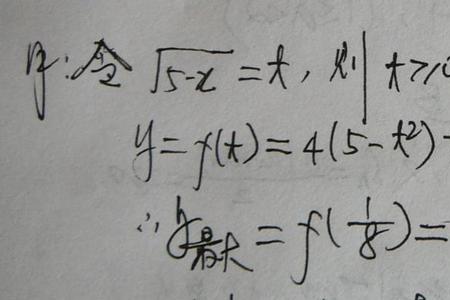 解:令 √(5-x) = t, 则 t ≥ 0
y = f(t) = 4(5-t²)-
∴ y最大 = f(1/8) =